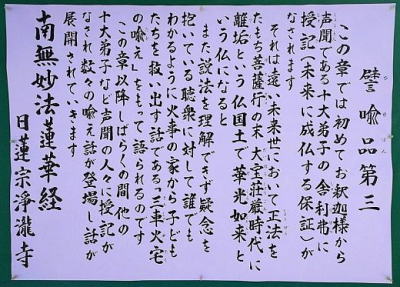 譬喩品第三
この章では初めてお釈迦様から
声聞である十大弟子の舎利弗に
授記(未来に成仏する保証)が
なされます
それは遠い未来世において正法を
たもち菩薩行の末 大宝荘厳時代に
離垢という仏国土で華光如来と
いう仏になると
また説法を理解できず疑念を
抱いている聴衆に対して誰でも
わかるように火事の家から子ども
たちを救い出す話である「三車火宅
の喩え」をもって語られるのです
この章以降しばらくの間他の
十大弟子など声聞の人々に授記が
なされ数々の喩え話が登場し話が
展開されていきます
南無妙法蓮華経
日蓮宗浄瀧寺